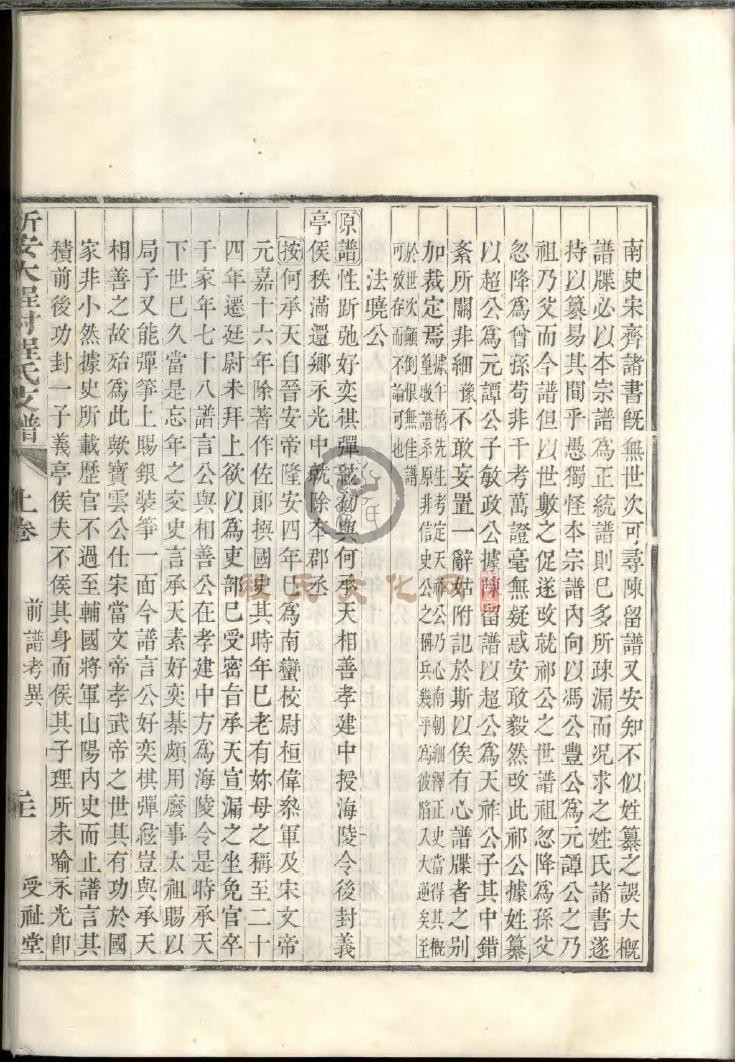 南史宋齊諸書旣無世次可尋陳留譜又安知不似姓纂之誤大槪
譜牒必以本宗譜爲正統譜則已多所疎漏而况求之姓氏諸書遂
持以纂易其間乎愚獨怪本宗譜內向以馮公豐公爲元譚公之乃
祖乃父而今譜但以世數之促遂攺就祁公之世譜祖忽降爲孫父
忽降爲曾孫苟非千考萬證毫無疑惑安敢毅然攺此祁公據姓纂
以超公爲元譚公子敏政公據陳留譜以超公爲天祚公子其中錯
紊所關非細豫不敢妄置一辭姑附記於斯以俟有心譜牒者之別
加裁定焉據午橋先生考定天祚公乃心南朝紬繹正史當得其概
篁墩譜系原非信史公之稱兵幾乎爲彼陷入大逆矣至
於世次顚倒恨無佳譜
可攷存而不論可也
法曉公
原譜性跅弛好奕祺彈綋初與何承天相善孝建中授海陵令後封義
亭侯秩滿還鄉永光中就除本郡丞
按何承天自晉安帝隆安四年已爲南蠻校尉桓偉叅軍及宋文帝
元嘉十六年除著作佐郞撰國史其時年已老有妳母之稱至二十
四年遷廷尉未拜上欲以爲吏部已受密旨承天宣漏之坐免官卒
于家年七十八譜言公與相善公在孝建中方爲海陵令是時承天
下世已久當是忘年之交史言承天素好奕棊頗用廢事太祖賜以
局子又能彈箏上賜銀裝箏一面今譜言公好奕棋彈綋豈與承天
相善之故殆爲此歟寶雲公仕宋當文帝孝武帝之世其有功於國
家非小然據史所載歴官不過至輔國將軍山陽內史而止譜言其
積前後功封一子義亭侯夫不侯其身而侯其子理所未喻永光卽
新安大程村程氏支譜
上卷
前譜考異
受祉堂
程氏文化网